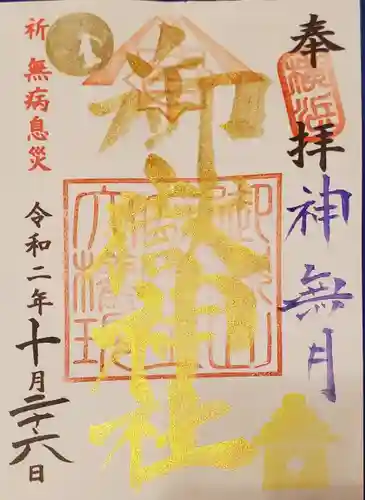 奉拝
横浜
神無月
御嶽神社
祈 無病息災
令和二年十月二十六日